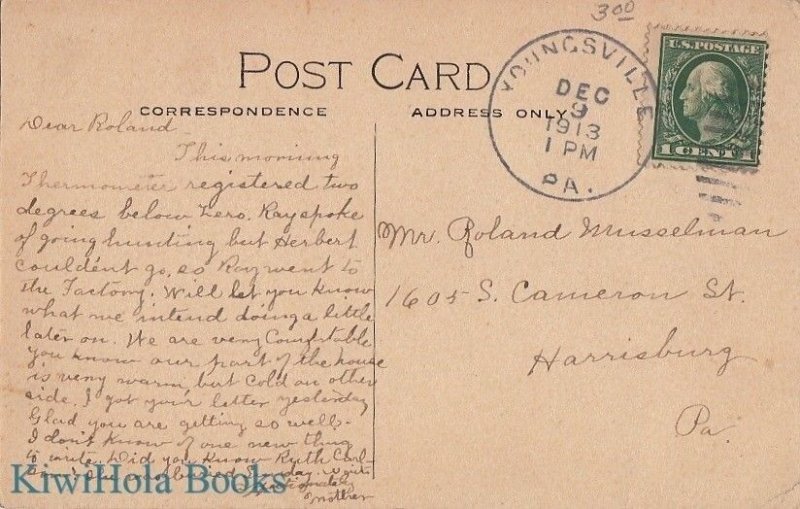 3.00
POST CARD
CORRESPONDENCE
ADDRESS ONLY
YOUNGSVILLE
DEC
9
1913
1 PM
PA.
U.S. POSTAGE
1 CENT 1
Dear Roland
This morning
Thermometer registered two
degrees below Zero. Ray spoke
of going hunting but Herbert
couldent go, so Ray went to
the Factory. Will let you know
what we intend doing a little
later on. We are very Comfortable
you know our part of the house
is very warm, but cold on other
side. I got your letter yesterday
Glad you are getting so well.
I don't know of one new thing
to write. Did you know Ruth Carl-
Sunday.
Mother
Mr. Roland Musselman
1605 S. Cameron St.
Harrisburg
Pa.
KiwiHola Books